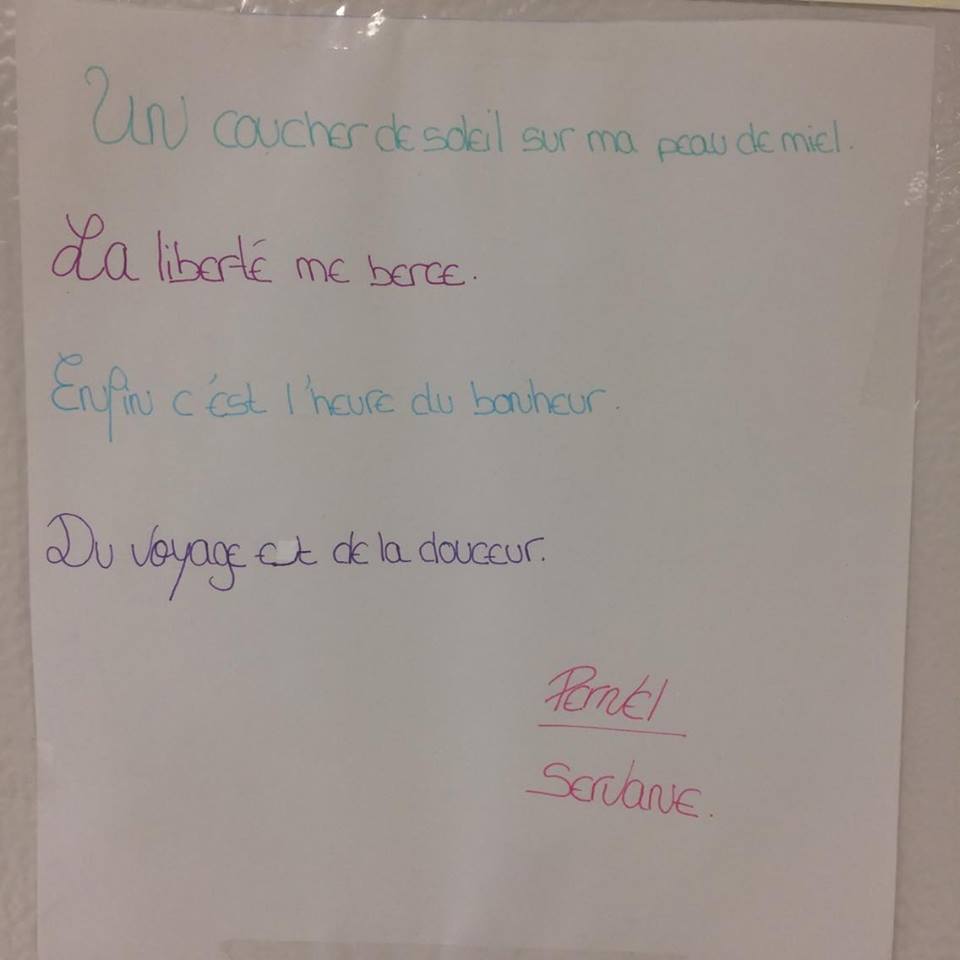 Un coucher de soleil sur ma peau de miel.
La liberté me berce.
Enfin c'est l'heure du bonheur.
Du voyage et de la douceur.
Pernel
Servane.